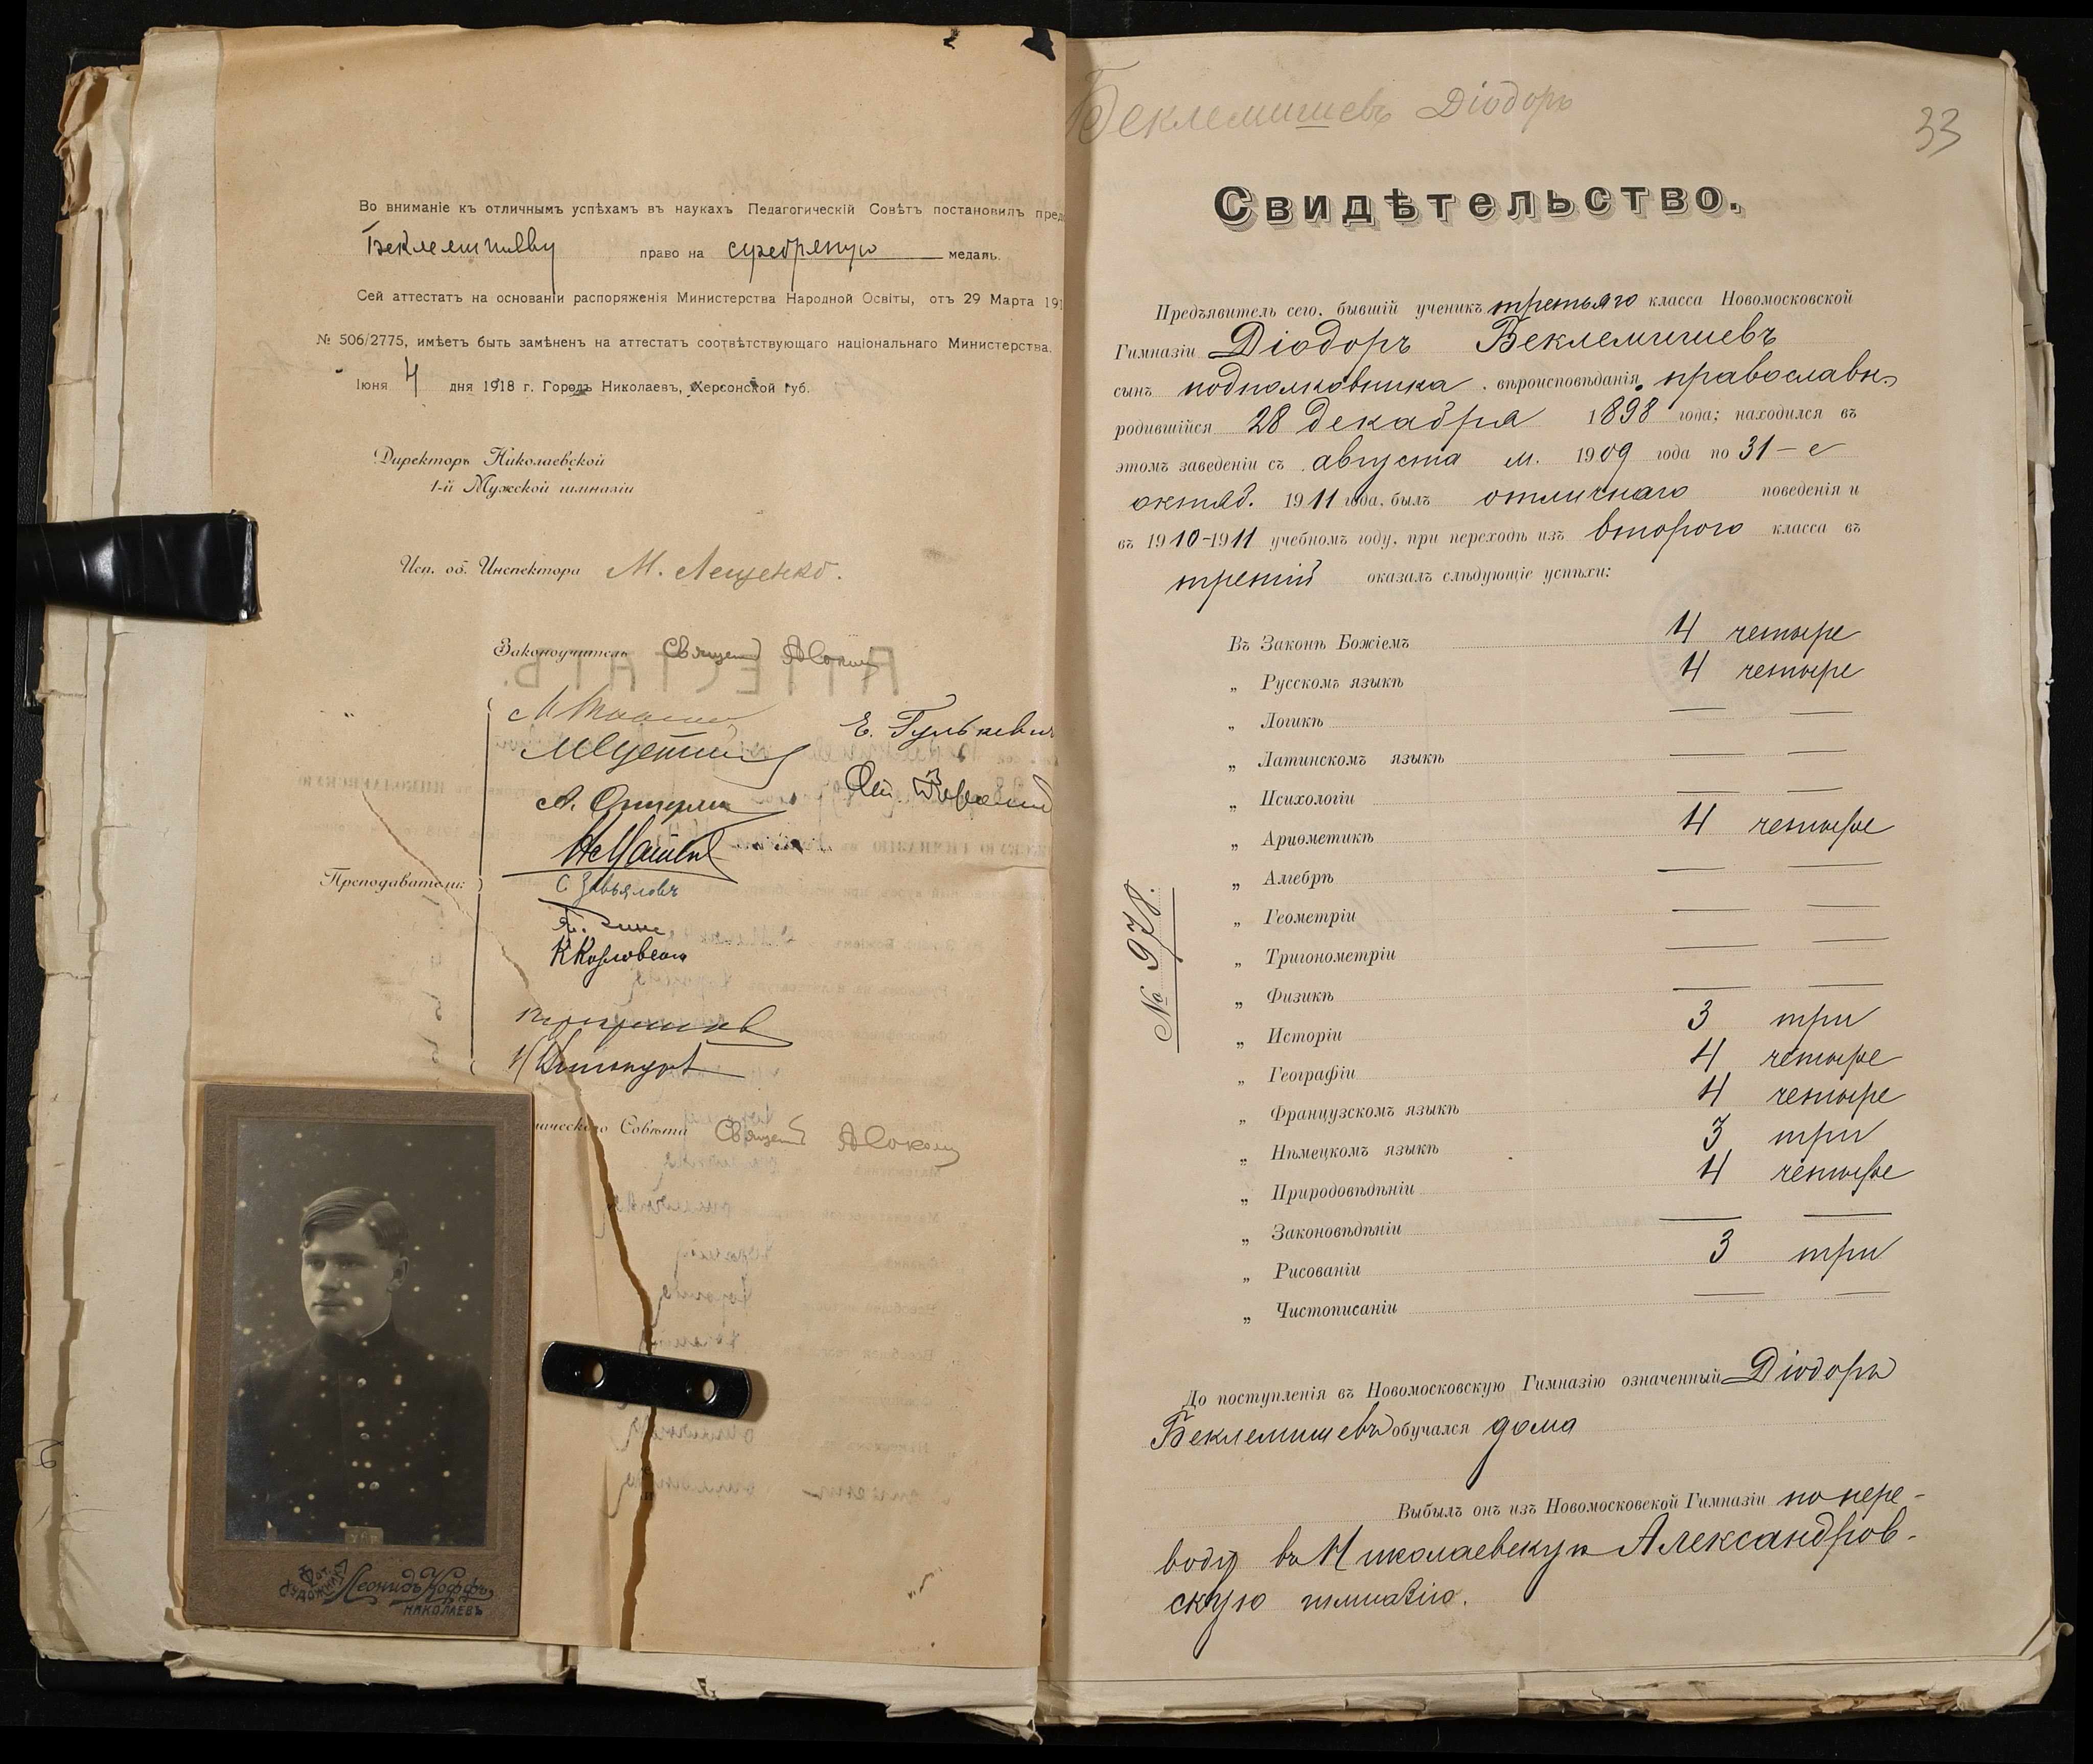 Во вниманіе къ отличнымъ успѣхамъ въ наукахъ Педагогическій Совѣтъ постановилъ пред
Беклемишеву право на серебряную медаль.
Сей аттестатъ на основаніи распоряженія Министерства Народной Освіты, отъ 29 Марта 191
№ 506/2775, имѣетъ быть замѣненъ на аттестатъ соотвѣтствующаго національнаго Министерства.
Іюня 4 дня 1918 г. Городъ Николаевъ, Херсонской губ.
Директоръ Николаевской
1-й Мужской гимназіи
Исп. об. Инспектора М. Лещенко.
Законоучитель Священ
Е. Гулькевич
Преподаватели:
С Завьяловъ
ическаго Совѣта Священ
Фот.
Художникъ
Леонидъ Коффъ
Николаевъ
Беклемишевъ Діодоръ
33
Свидѣтельство.
Предъявитель сего, бывшій ученикъ третьяго класса Новомосковской
Гимназіи Діодоръ Беклемишевъ
сынъ подполковника, вѣроисповѣданія православн.
родившійся 28 декабря 1898 года; находился въ
этомъ заведеніи съ августа м. 1909 года по 31-е
октяб. 1911 года, былъ отличнаго поведенія и
въ 1910-1911 учебномъ году, при переходѣ изъ второго класса въ
третій оказалъ слѣдующіе успѣхи:
Въ Законѣ Божіемъ 4 четыре
„ Русскомъ языкѣ 4 четыре
„ Логикѣ — —
„ Латинскомъ языкѣ — —
„ Психологіи — —
„ Ариѳметикѣ 4 четыре
„ Алгебрѣ — —
„ Геометріи — —
„ Тригонометріи — —
„ Физикѣ — —
„ Исторіи 3 три
„ Географіи 4 четыре
„ Французскомъ языкѣ 4 четыре
„ Нѣмецкомъ языкѣ 3 три
„ Природовѣдѣніи 4 четыре
„ Законовѣдѣніи — —
„ Рисованіи 3 три
„ Чистописаніи — —
№ 978.
До поступленія въ Новомосковскую Гимназію означенный Діодоръ
Беклемишевъ обучался дома
Выбылъ онъ изъ Новомосковской Гимназіи по пере-
воду въ Николаевскую Александров-
скую гимназію.